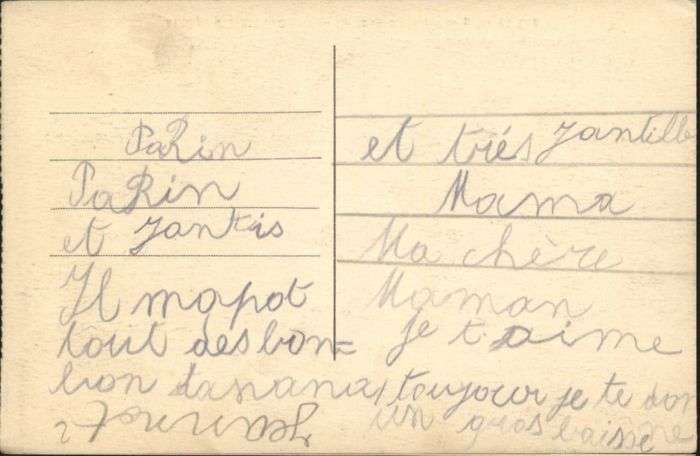 PaRin
PaRin
et Jantis
Il mapot
tout des bon=
bon tanana
et triés Jantille
Mama
Ma chère
Maman
je t aime
toujour je te don
un gros baisse